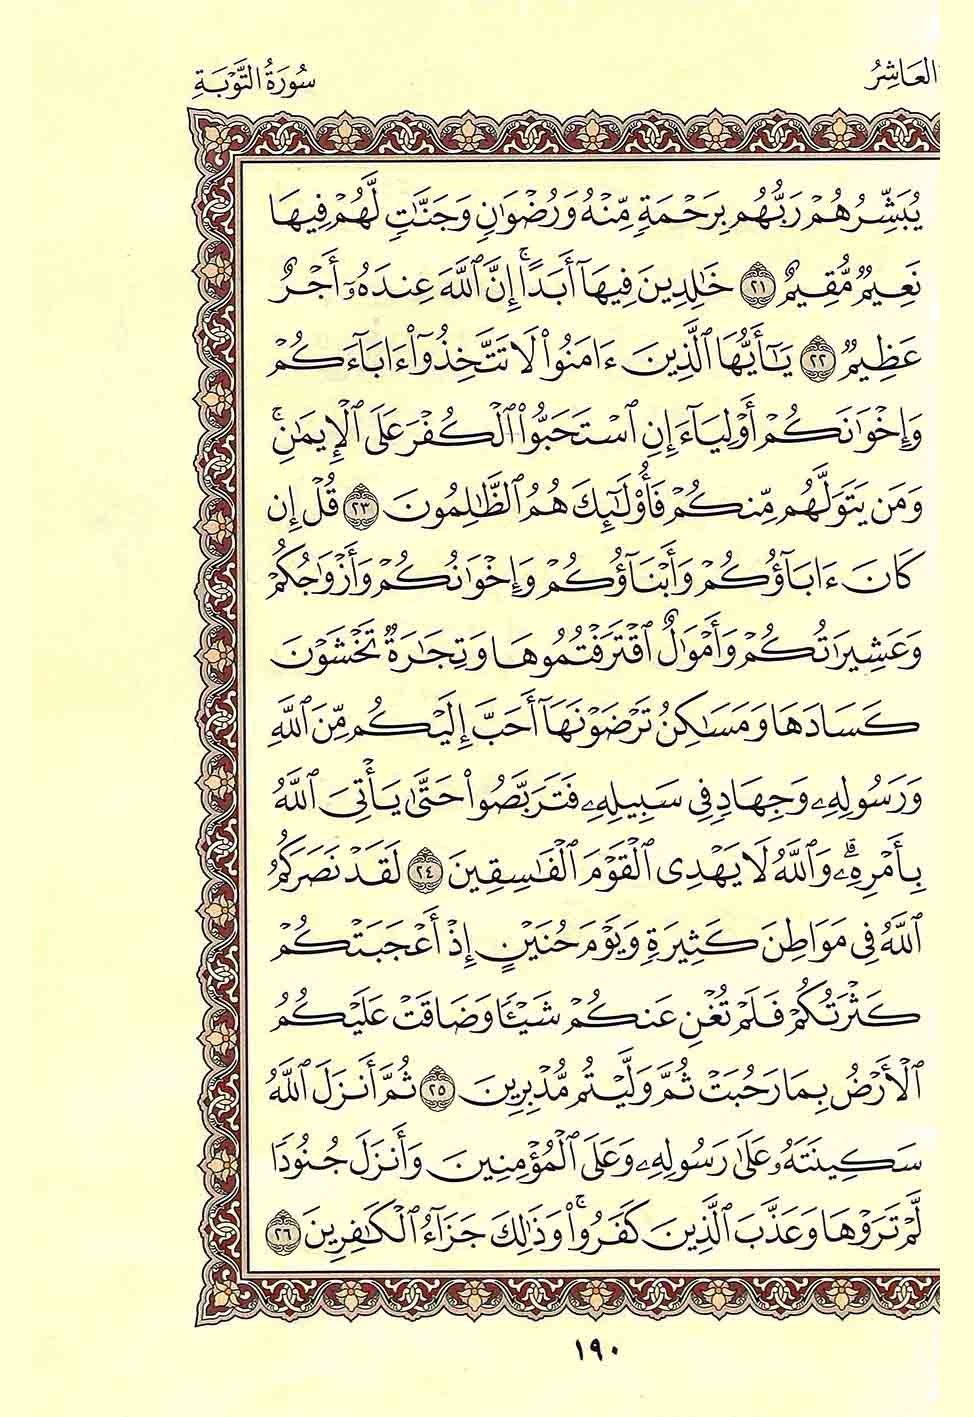 العَاشِرُ
سُورَةُ التَّوْبَةِ
يُبَشِّرُهُمْ رَبُّهُم بِرَحْمَةٍ مِّنْهُ وَرُضْوَٰنٍ وَجَنَّٰتٍ لَّهُمْ فِيهَا
نَعِيمٌ مُّقِيمٌ ٢١ خَٰلِدِينَ فِيهَآ أَبَدًاۚ إِنَّ ٱللَّهَ عِندَهُۥٓ أَجْرٌ
عَظِيمٌ ٢٢ يَٰٓأَيُّهَا ٱلَّذِينَ ءَامَنُوا۟ لَا تَتَّخِذُوٓا۟ ءَابَآءَكُمْ
وَإِخْوَٰنَكُمْ أَوْلِيَآءَ إِنِ ٱسْتَحَبُّوا۟ ٱلْكُفْرَ عَلَى ٱلْإِيمَٰنِۚ
وَمَن يَتَوَلَّهُم مِّنكُمْ فَأُو۟لَٰٓئِكَ هُمُ ٱلظَّٰلِمُونَ ٢٣ قُلْ إِن
كَانَ ءَابَآؤُكُمْ وَأَبْنَآؤُكُمْ وَإِخْوَٰنُكُمْ وَأَزْوَٰجُكُمْ
وَعَشِيرَٰتُكُمْ وَأَمْوَٰلٌ ٱقْتَرَفْتُمُوهَا وَتِجَٰرَةٌ تَخْشَوْنَ
كَسَادَهَا وَمَسَٰكِنُ تَرْضَوْنَهَآ أَحَبَّ إِلَيْكُم مِّنَ ٱللَّهِ
وَرَسُولِهِۦ وَجِهَادٍ فِى سَبِيلِهِۦ فَتَرَبَّصُوا۟ حَتَّىٰ يَأْتِىَ ٱللَّهُ
بِأَمْرِهِۦۗ وَٱللَّهُ لَا يَهْدِى ٱلْقَوْمَ ٱلْفَٰسِقِينَ ٢٤ لَقَدْ نَصَرَكُمُ
ٱللَّهُ فِى مَوَاطِنَ كَثِيرَةٍ وَيَوْمَ حُنَيْنٍ إِذْ أَعْجَبَتْكُمْ
كَثْرَتُكُمْ فَلَمْ تُغْنِ عَنكُمْ شَيْـًٔا وَضَاقَتْ عَلَيْكُمُ
ٱلْأَرْضُ بِمَا رَحُبَتْ ثُمَّ وَلَّيْتُم مُّدْبِرِينَ ٢٥ ثُمَّ أَنزَلَ ٱللَّهُ
سَكِينَتَهُۥ عَلَىٰ رَسُولِهِۦ وَعَلَى ٱلْمُؤْمِنِينَ وَأَنزَلَ جُنُودًا
لَّمْ تَرَوْهَا وَعَذَّبَ ٱلَّذِينَ كَفَرُوا۟ۚ وَذَٰلِكَ جَزَآءُ ٱلْكَٰفِرِينَ ٢٦
١٩٠